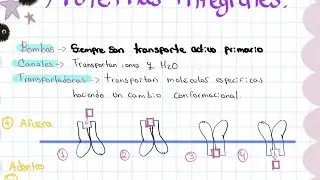 Proteinas Integrales.
Bombas → Siempre son transporte activo primario
Canales → Transportan iones y H2O
Transportadoras → transportan moléculas especificas
haciendo un cambio conformacional.
+ Afuera
1 2 3 4
Adentro